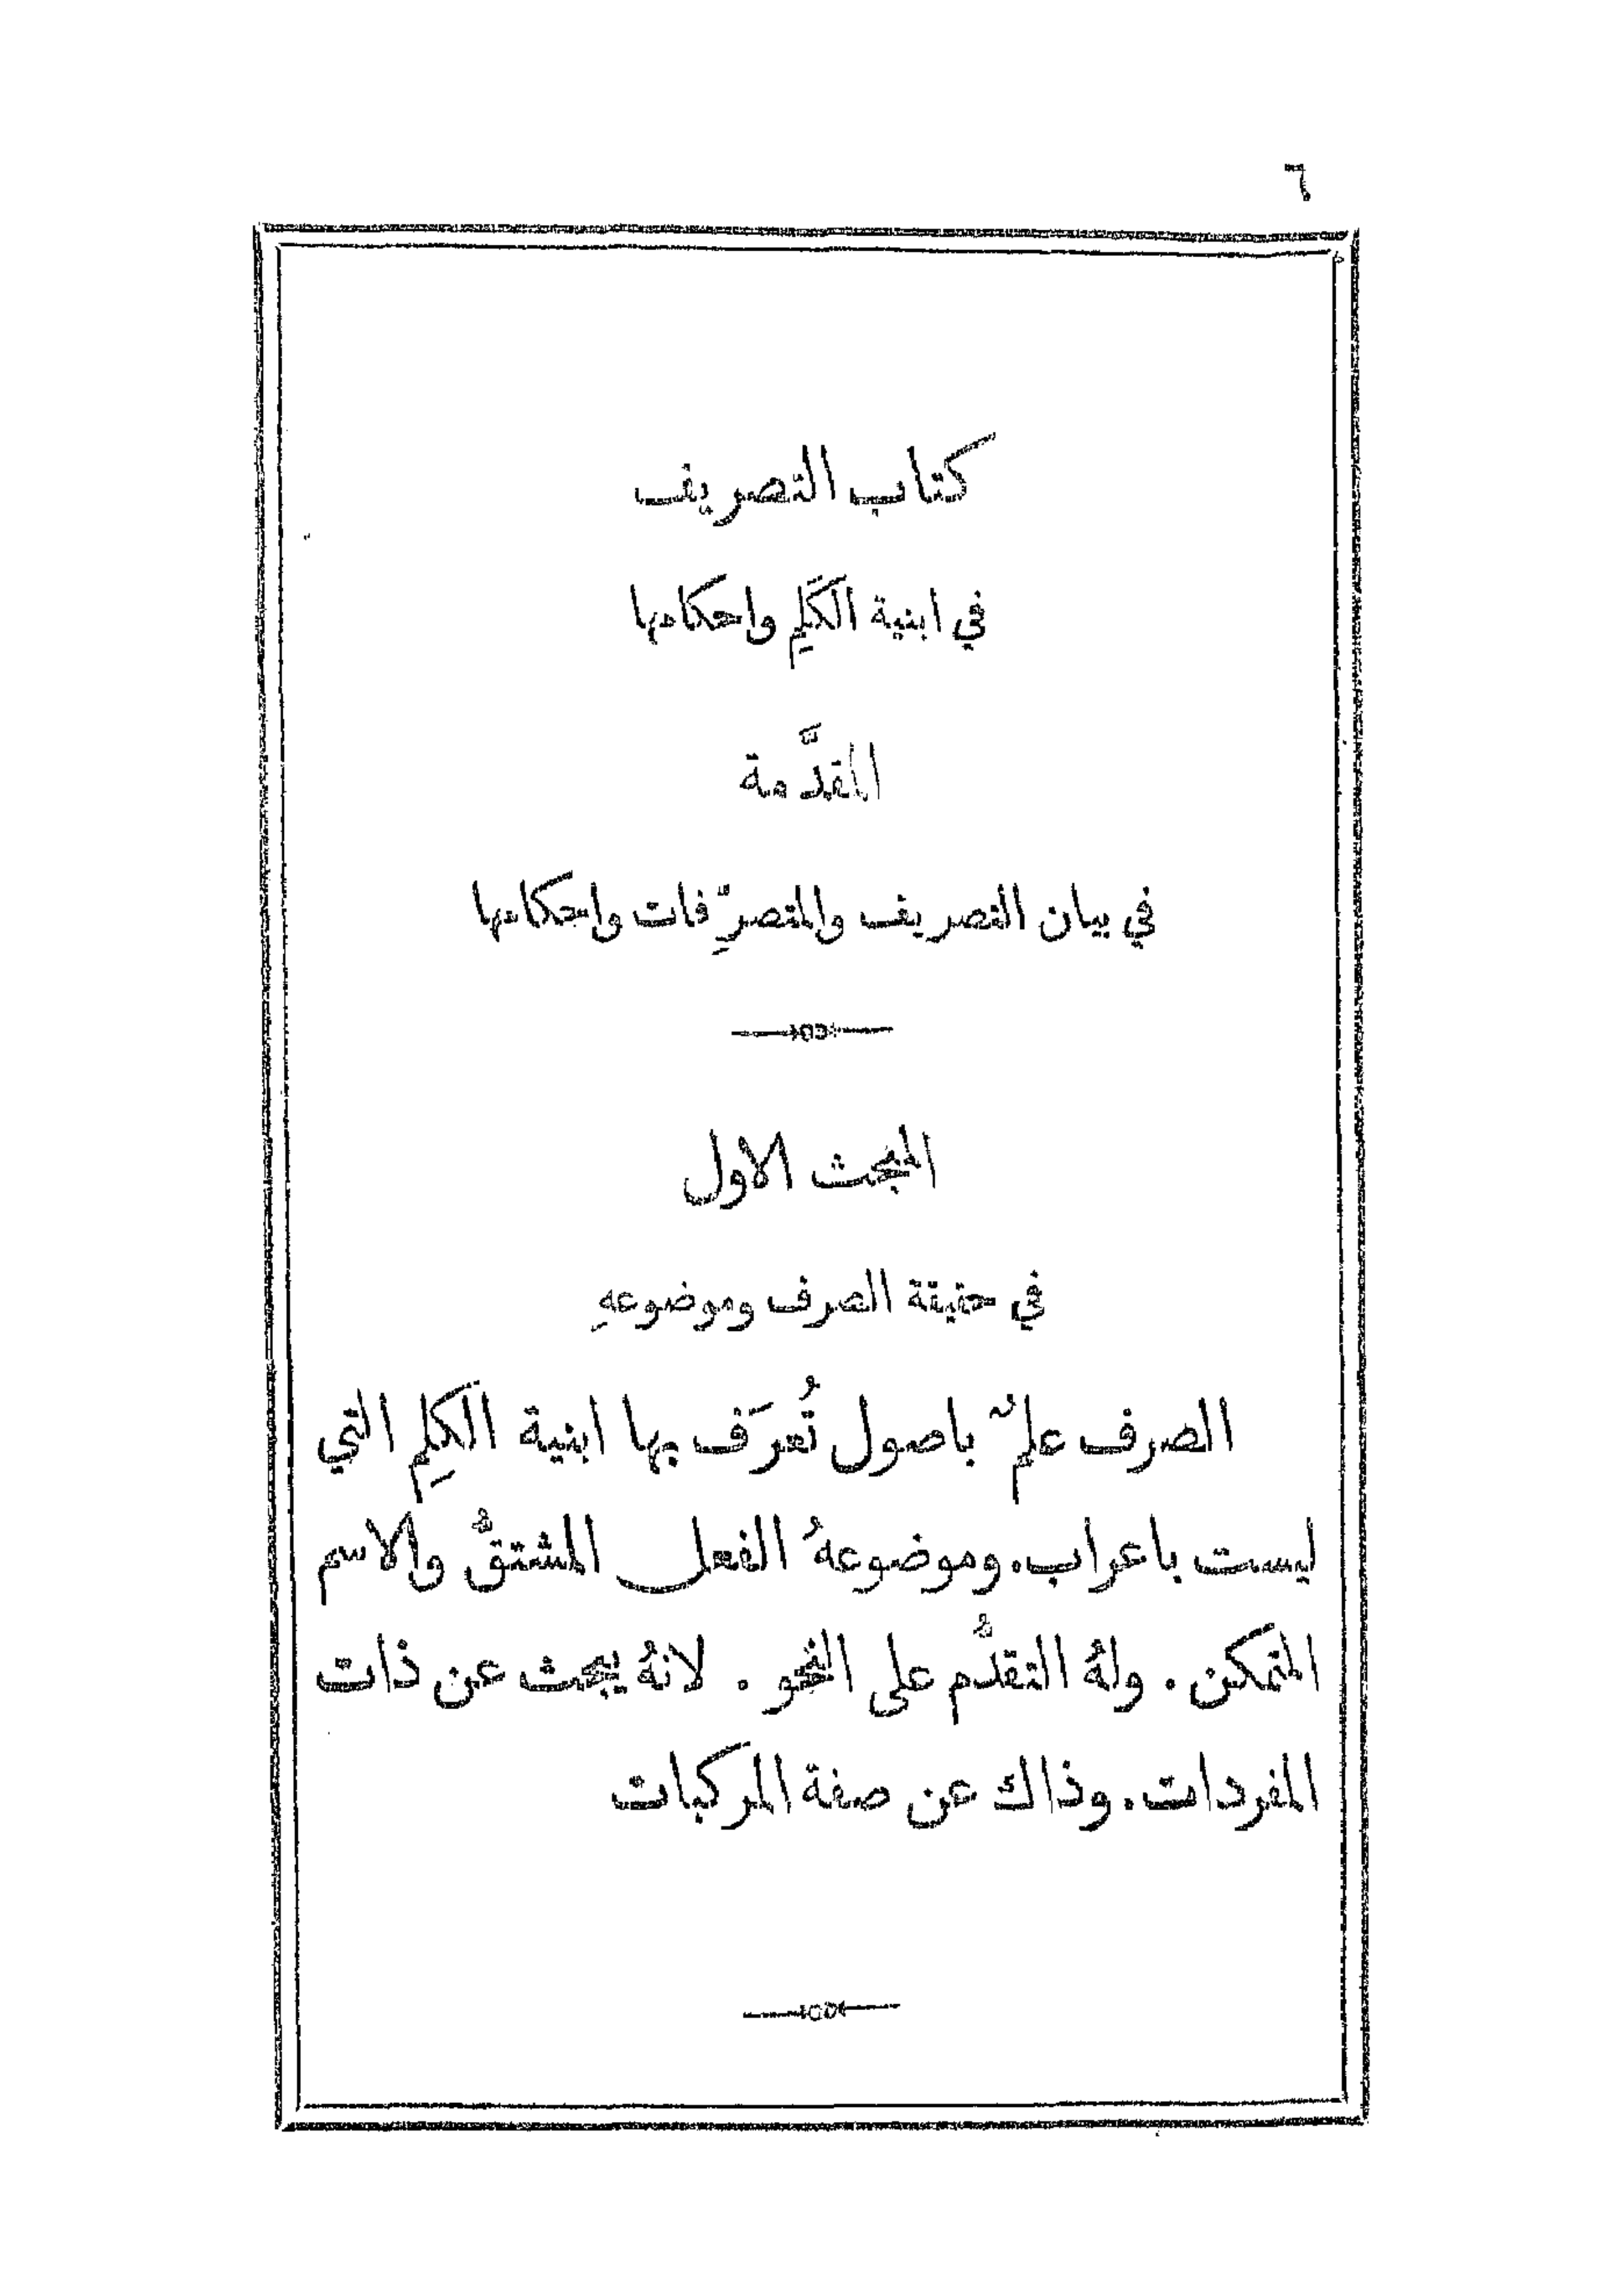 ٦
كتاب التصريف
في ابنية الكَلِمِ واحكامها
المقدَّمة
في بيان التصريف والمتصرِّفات واحكامها
المبحث الاول
في حقيقة الصرف وموضوعهِ
الصرف علمٌ باصول تُعرَف بها ابنية الكَلِمِ التي
ليست باعراب. وموضوعهُ الفعل المشتقُّ والاسم
المتمكن. ولهُ التقدُّم على النحو. لانهُ يبحث عن ذات
المفردات. وذاك عن صفة المركبات